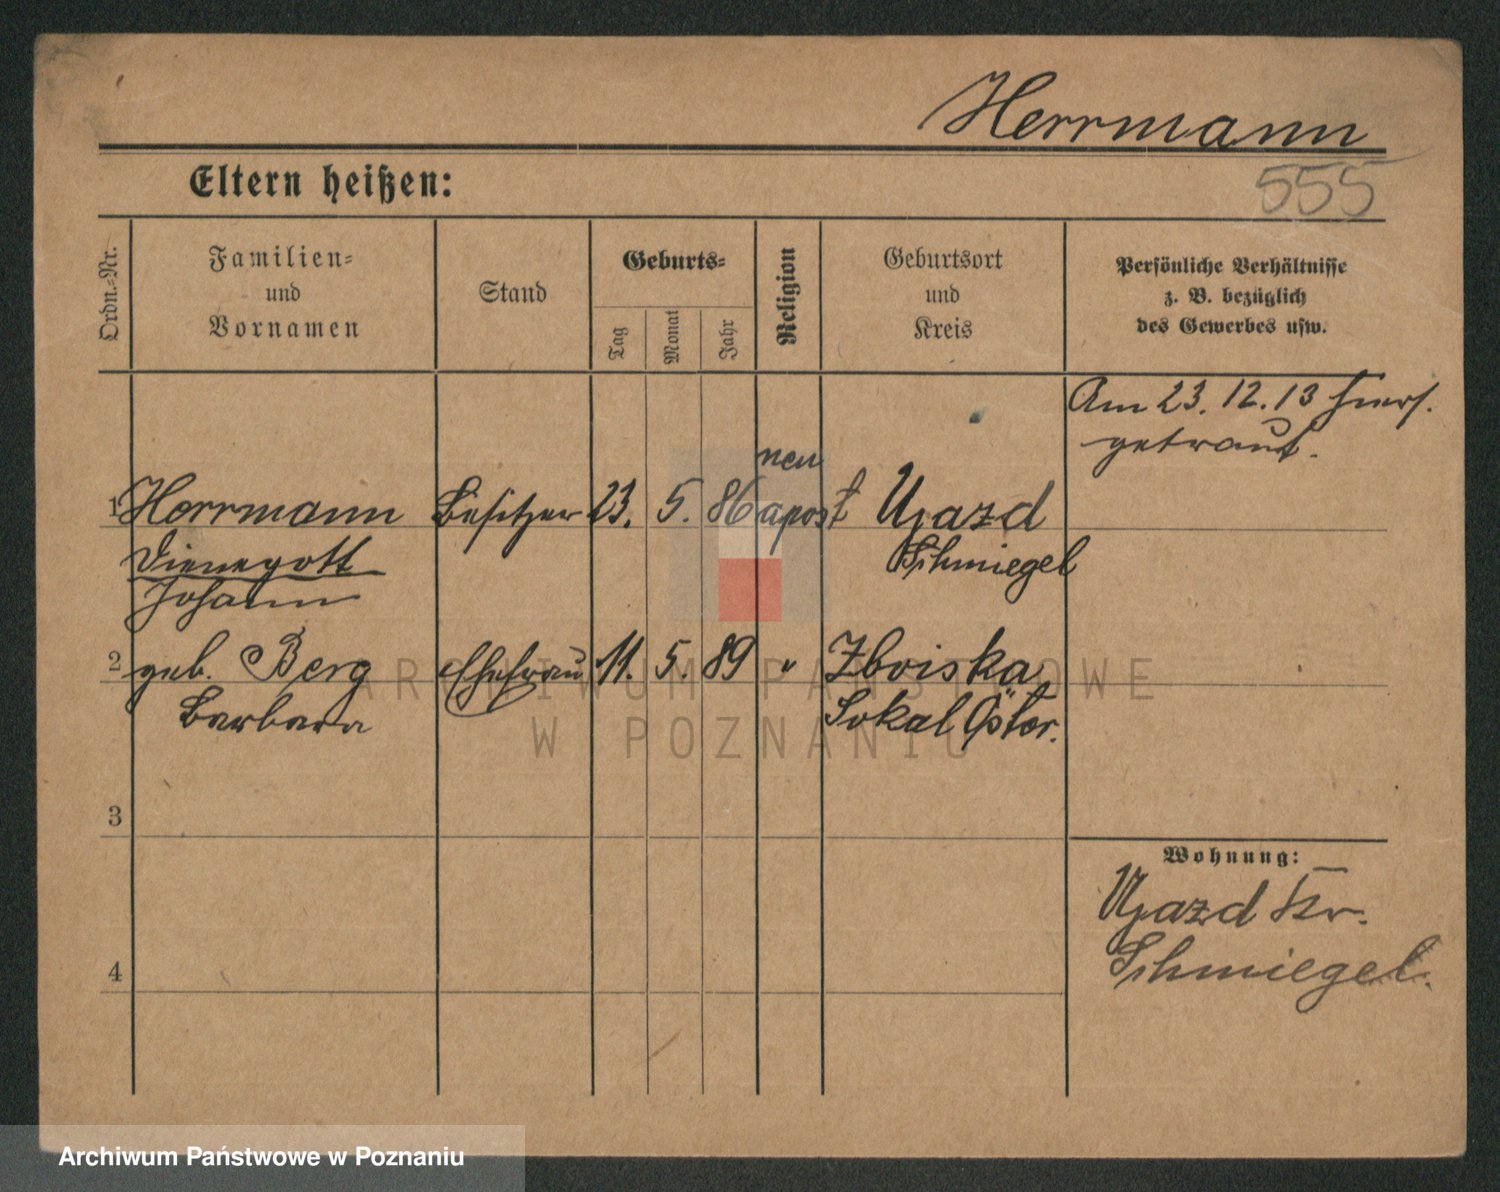 Herrmann
555
Eltern heißen:
Ordn.-Nr.
Familien-
und
Vornamen
Stand
Geburts-
Tag
Monat
Jahr
Religion
Geburtsort
und
Kreis
Persönliche Verhältnisse
z. B. bezüglich
des Gewerbes usw.
Am 23. 12. 13 hiers.
getraut.
neu
1 Herrmann Besitzer 23. 5. 86 apost Ujazd
Dienegott Schmiegel
Johann
2 geb. Berg Ehefrau 11. 5. 89 " Zboiska
Barbara Sokal Öster.
3
Wohnung:
Ujazd Kr.
Schmiegel.
4
ARCHIWUM PAŃSTWOWE
W POZNANIU
Archiwum Państwowe w Poznaniu